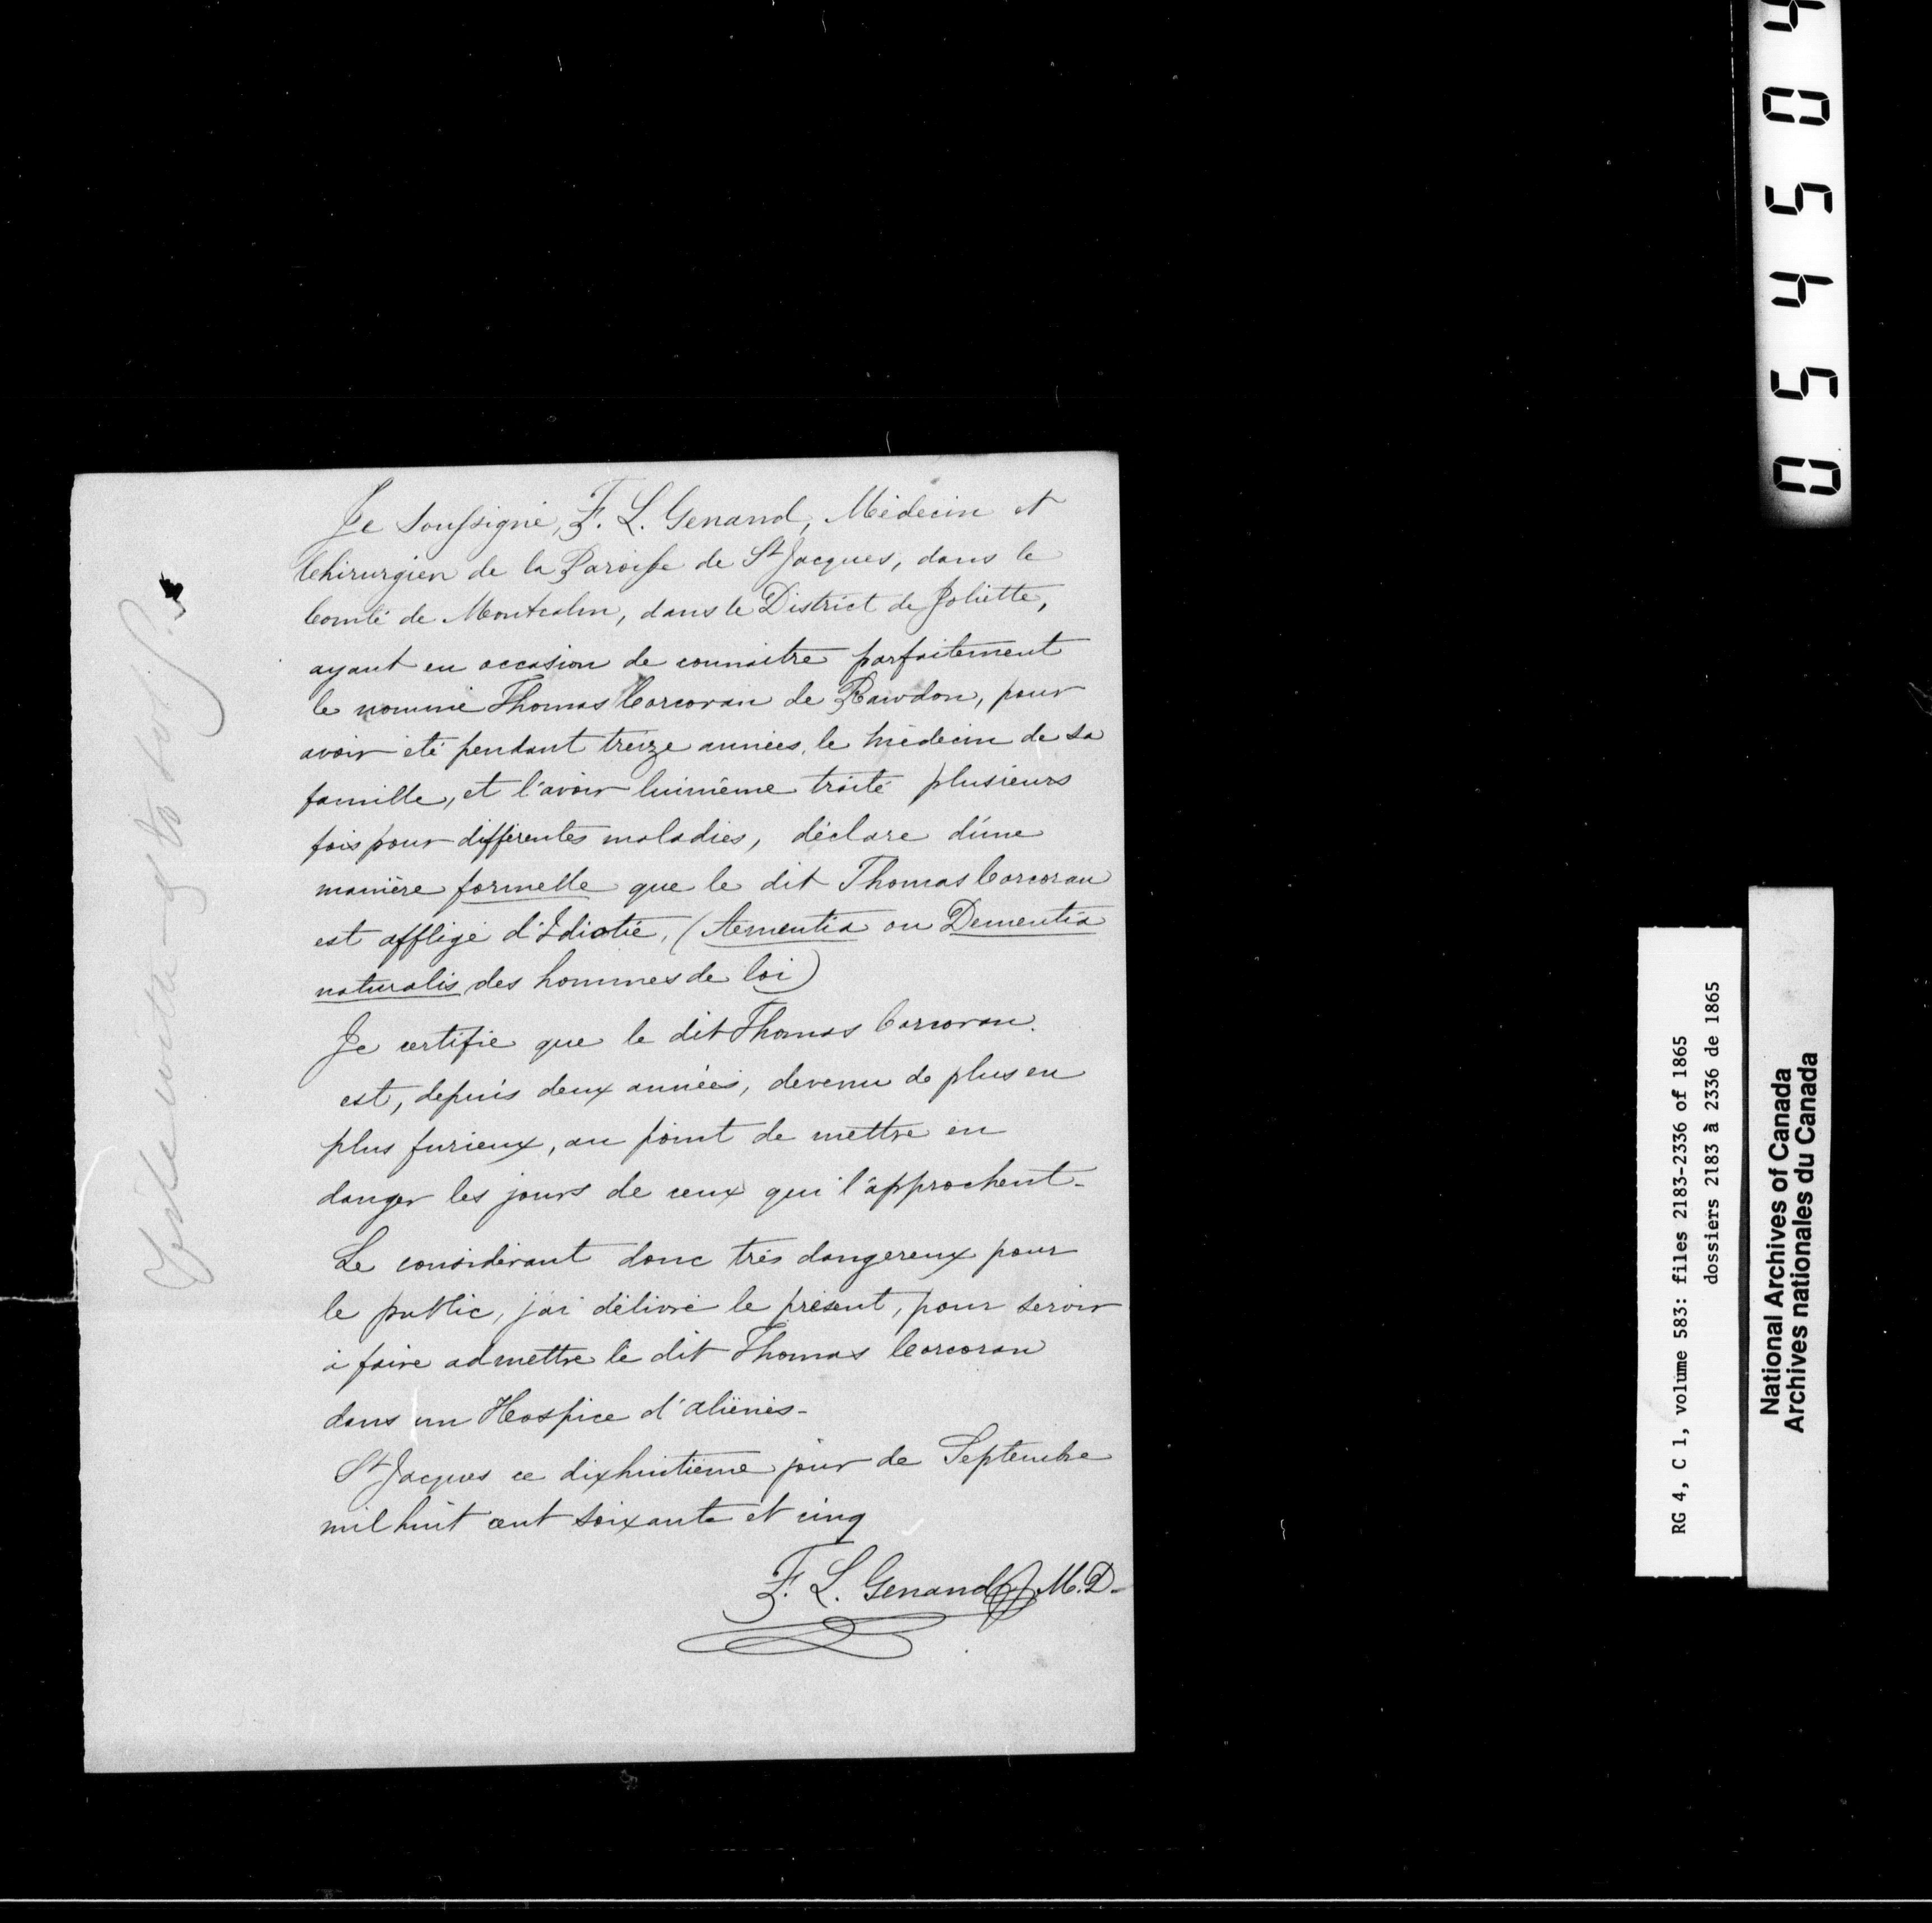 Je Soussigné, F. L. Genand, Médecin et
Chirurgien de la Paroisse de St Jacques, dans le
Comté de Montcalm, dans le District de Joliette,
ayant eu occasion de connaitre parfaitement
le nommé Thomas Corcoran de Rawdon, pour
avoir été pendant treize années, le médecin de sa
famille, et l'avoir luimême traité plusieurs
fois pour différentes maladies, déclare d'une
manière formelle que le dit Thomas Corcoran
est affligé d'Idiotie, (Aementia ou Dementia
naturalis des hommes de loi)
Je certifie que le dit Thomas Corcoran
est, depuis deux années, devenu de plus en
plus furieux, au point de mettre en
danger les jours de ceux qui l'approchent-
Le considérant donc très dangereux pour
le public, j'ai délivré le présent, pour servir
à faire admettre le dit Thomas Corcoran
dans un Hospice d'aliénés-
St Jacques ce dixhuitième jour de Septembre
mil huit cent soixante et cinq
F. L. Genand M.D.
RG 4, C 1, volume 583: files 2183-2336 of 1865
dossiers 2183 à 2336 de 1865
National Archives of Canada
Archives nationales du Canada
0 5 4 5 0 4